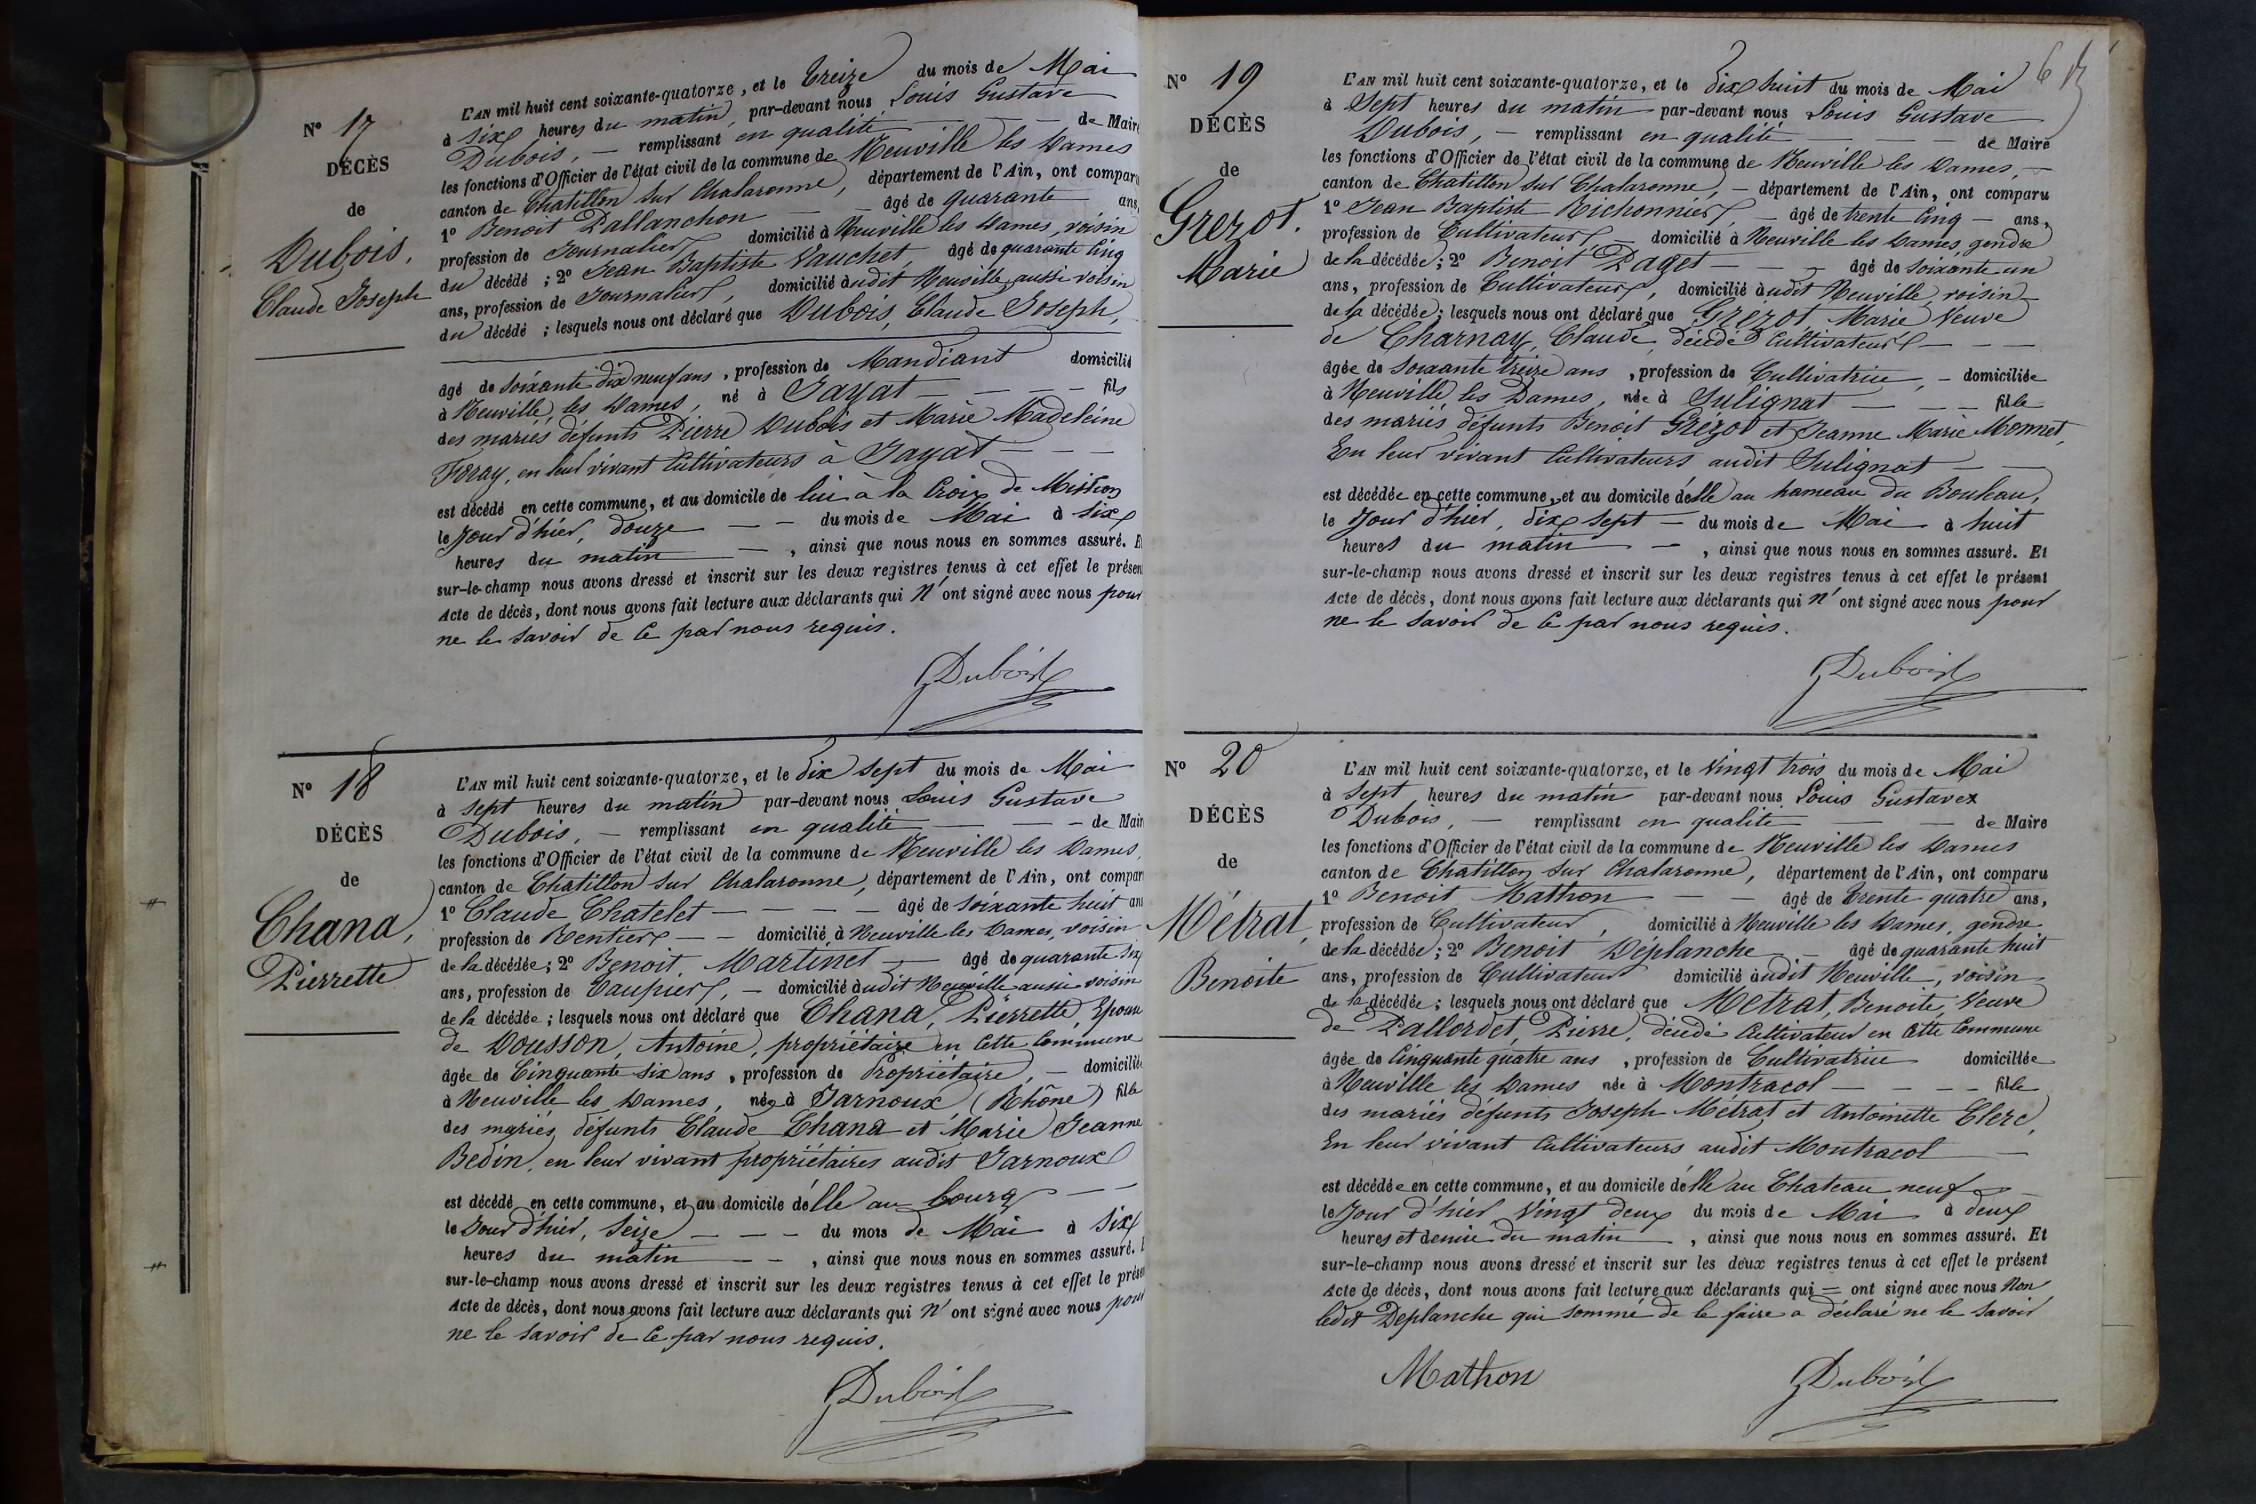 N° 17
DÉCÈS
de
Dubois,
Claude Joseph
L'AN mil huit cent soixante-quatorze, et le treize du mois de Mai
à six heures du matin, par-devant nous Louis Gustave
Dubois, — remplissant en qualité — — — de Maire
les fonctions d'Officier de l'état civil de la commune de Neuville les Dames
canton de Chatillon sur Chalaronne, département de l'Ain, ont comparu
1° Benoit Pallanchon — — âgé de quarante ans,
profession de Journalier, domicilié à Neuville les Dames, voisin
du décédé ; 2° Jean Baptiste Vauchet, âgé de quarante cinq
ans, profession de Journalier, domicilié audit Neuville aussi voisin
du décédé ; lesquels nous ont déclaré que Dubois, Claude Joseph,
âgé de soixante dix neuf ans, profession de Mandiant domicilié
à Neuville les Dames, né à Jayat — — — fils
des mariés défunts Pierre Dubois et Marie Madeleine
Foray, en leur vivant Cultivateurs à Jayat — — —
est décédé en cette commune, et au domicile de lui à la Croix de Mission
le Jour d'hier, douze — — du mois de Mai à six
heures du matin — , ainsi que nous nous en sommes assuré. Et
sur-le-champ nous avons dressé et inscrit sur les deux registres tenus à cet effet le présen
Acte de décès, dont nous avons fait lecture aux déclarants qui n'ont signé avec nous pour
ne le savoir de ce par nous requis.
GDubois
N° 18
DÉCÈS
de
Chana,
Pierrette
L'AN mil huit cent soixante-quatorze, et le dix sept du mois de Mai
à sept heures du matin par-devant nous Louis Gustave
Dubois, — remplissant en qualité — — — de Mair
les fonctions d'Officier de l'état civil de la commune de Neuville les Dames,
canton de Chatillon sur Chalaronne, département de l'Ain, ont compar
1° Claude Chatelet — — — — âgé de soixante huit ans
profession de Rentier — — domicilié à Neuville les Dames, voisin
de la décédée ; 2° Benoit Martinet — âgé de quarante six
ans, profession de Taupier, — domicilié audit Neuville aussi voisin
de la décédée ; lesquels nous ont déclaré que Chana, Pierrette, Epouse
de Dousson, Antoine, propriétaire en Cette Commune
âgée de Cinquante six ans, profession de Propriétaire, — domiciliée
à Neuville les Dames, née à Jarnoux (Rhône) fille
des mariés défunts Claude Chana et Marie Jeanne
Bedin, en leur vivant propriétaires audit Jarnoux
est décédé en cette commune, et au domicile d'elle au bourg — —
le Jour d'hier, seize — — — du mois de Mai à six
heures du matin — — , ainsi que nous nous en sommes assuré. E
sur-le-champ nous avons dressé et inscrit sur les deux registres tenus à cet effet le présen
Acte de décès, dont nous avons fait lecture aux déclarants qui n'ont signé avec nous pour
ne le savoir de ce par nous requis.
GDubois
6
N° 19
DÉCÈS
de
Grezot,
Marie
L'AN mil huit cent soixante-quatorze, et le dix huit du mois de Mai
à Sept heures du matin par-devant nous Louis Gustave
Dubois, — remplissant en qualité — — de Maire
les fonctions d'Officier de l'état civil de la commune de Neuville les Dames, —
canton de Chatillon sur Chalaronne, — département de l'Ain, ont comparu
1° Jean Baptiste Bichonnier, — âgé de trente cinq — ans,
profession de Cultivateur, — domicilié à Neuville les Dames, gendre
de la décédée ; 2° Benoit Paget — — — âgé de soixante un
ans, profession de Cultivateur, domicilié audit Neuville, voisin
de la décédée ; lesquels nous ont déclaré que Grézot, Marie Veuve
de Charnay, Claude, décédé Cultivateur — — —
âgée de soixante treize ans, profession de Cultivatrice, — domiciliée
à Neuville les Dames, née à Sulignat — — — fille
des mariés défunts Benoit Grézot et Jeanne Marie Monnet,
En leur vivant Cultivateurs audit Sulignat — —
est décédée en cette commune, et au domicile d'elle au hameau du Bouleau,
le Jour d'hier, dix sept — du mois de Mai à huit
heures du matin — , ainsi que nous nous en sommes assuré. Et
sur-le-champ nous avons dressé et inscrit sur les deux registres tenus à cet effet le présent
Acte de décès, dont nous avons fait lecture aux déclarants qui n'ont signé avec nous pour
ne le savoir de ce par nous requis.
GDubois
N° 20
DÉCÈS
de
Métrat,
Benoite
L'AN mil huit cent soixante-quatorze, et le Vingt trois du mois de Mai
à Sept heures du matin par-devant nous Louis Gustave
Dubois, — remplissant en qualité — — de Maire
les fonctions d'Officier de l'état civil de la commune de Neuville les Dames
canton de Chatillon sur Chalaronne, département de l'Ain, ont comparu
1° Benoit Mathon — — âgé de trente quatre ans,
profession de Cultivateur, domicilié à Neuville les Dames, gendre
de la décédée ; 2° Benoit Déplanche — âgé de quarante huit
ans, profession de Cultivateur domicilié audit Neuville, voisin
de la décédée ; lesquels nous ont déclaré que Métrat, Benoite, Veuve
de Pallordet, Pierre, décédé Cultivateur en Cette Commune
âgée de Cinquante quatre ans, profession de Cultivatrice domiciliée
à Neuville les Dames née à Montracol — — — fille
des mariés défunts Joseph Métrat et Antoinette Clerc,
En leur vivant Cultivateurs audit Montracol —
est décédée en cette commune, et au domicile d'elle au Chateau neuf —
le Jour d'hier, Vingt deux du mois de Mai à deux
heures et demie du matin — , ainsi que nous nous en sommes assuré. Et
sur-le-champ nous avons dressé et inscrit sur les deux registres tenus à cet effet le présent
Acte de décès, dont nous avons fait lecture aux déclarants qui = ont signé avec nous Non
ledit Deplanche qui sommé de le faire a déclaré ne le savoir
Mathon GDubois